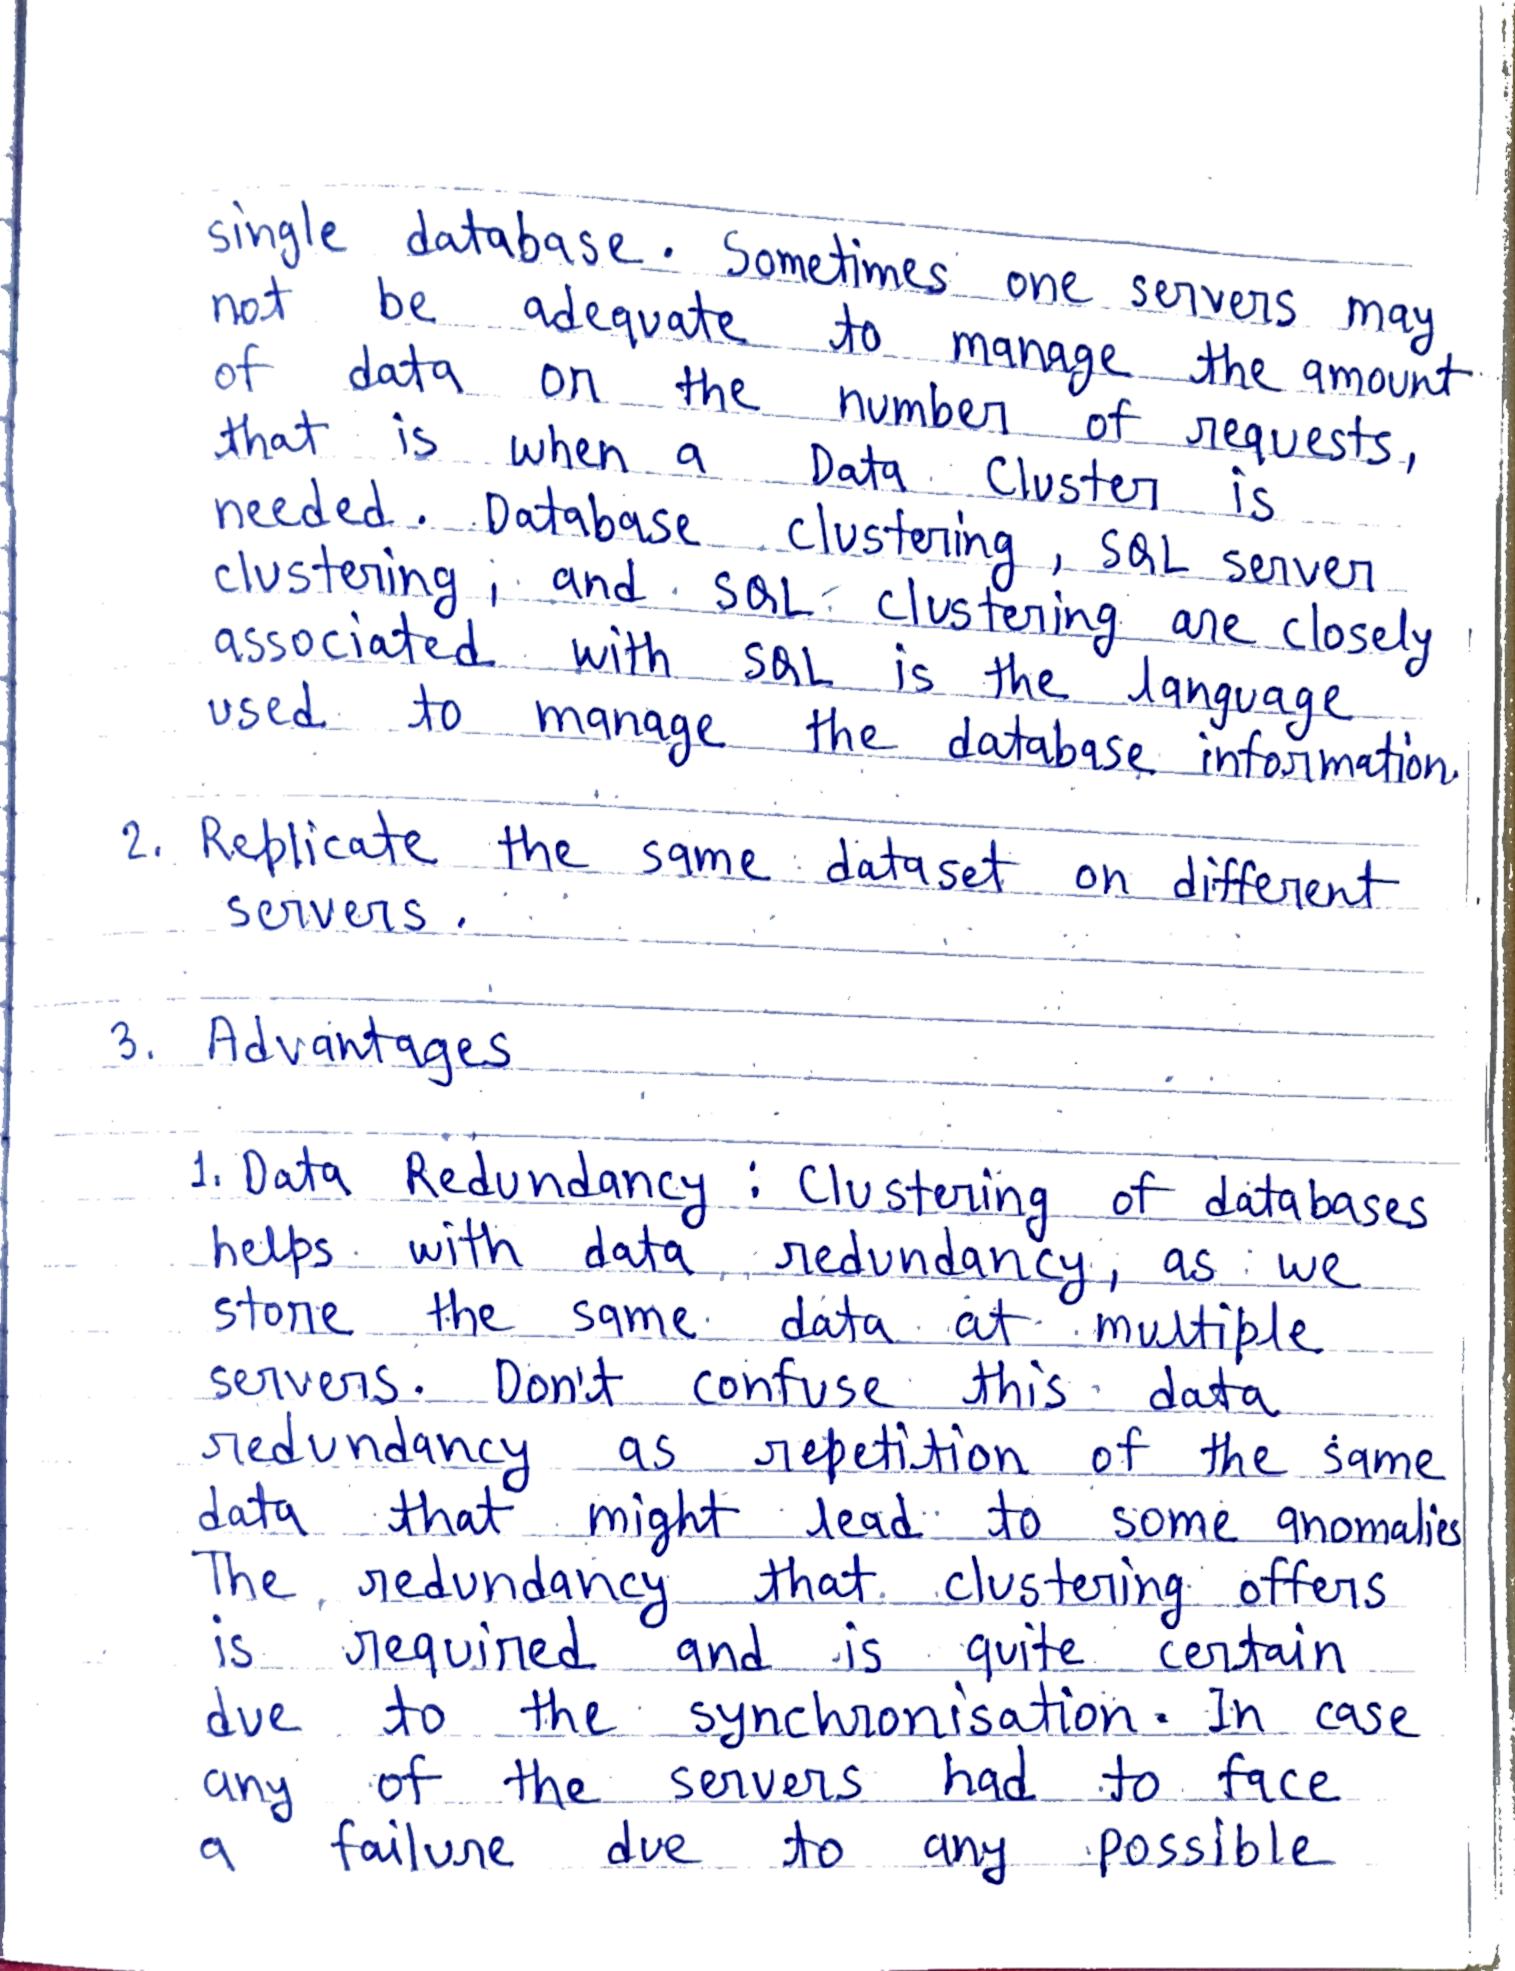 single database. Sometimes one servers may
not be adequate to manage the amount
of data or the number of requests,
that is when a Data Cluster is
needed. Database clustering, SQL server
clustering, and SQL clustering are closely
associated with SQL is the language
used to manage the database information.
2. Replicate the same dataset on different
servers.
3. Advantages
1. Data Redundancy : Clustering of databases
helps with data redundancy, as we
store the same data at multiple
servers. Don't confuse this data
redundancy as repetition of the same
data that might lead to some anomalies
The redundancy that clustering offers
is required and is quite certain
due to the synchronisation. In case
any of the servers had to face
a failure due to any possible